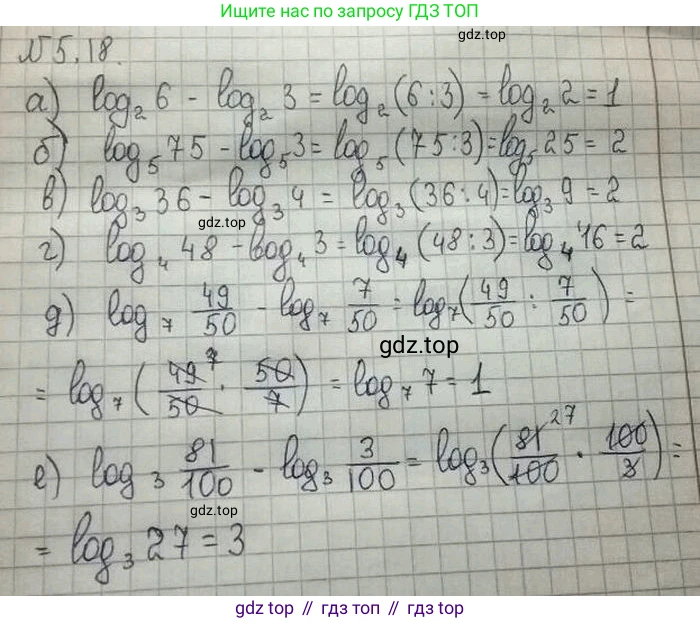 Ищите нас по запросу ГДЗ ТОП
gdz.top
№5.18.
а) log₂ 6 - log₂ 3 = log₂ (6:3) = log₂ 2 = 1
б) log₅ 75 - log₅ 3 = log₅ (75:3) = log₅ 25 = 2
в) log₃ 36 - log₃ 4 = log₃ (36:4) = log₃ 9 = 2
gdz.top
г) log₄ 48 - log₄ 3 = log₄ (48:3) = log₄ 16 = 2
д) log₇ 49/50 - log₇ 7/50 = log₇ (49/50 : 7/50) =
gdz.top
= log₇ (49⁷/50 · 50/7) = log₇ 7 = 1
е) log₃ 81/100 - log₃ 3/100 = log₃ (81²⁷/100 · 100/3) =
gdz.top
= log₃ 27 = 3
gdz top // гдз топ // gdz.top